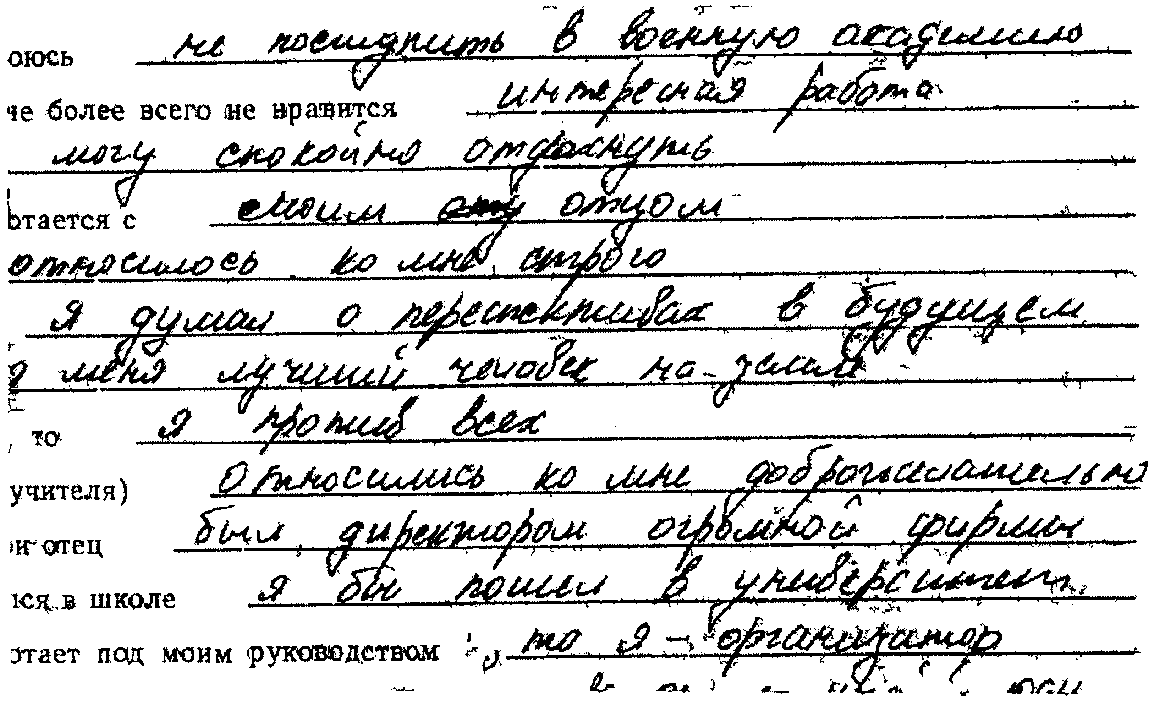 оюсь не поступить в военную академию
не более всего не нравится интересная работа
могу спокойно отдохнуть
отается с смоим отцом
относилось ко мне строго
я думал о переспективах в будущем
меня лучший человек на земле
, то я против всех
учителя) относились ко мне доброжелательно
й отец был директором огромной фирмы
лся в школе я бы пошел в университет
отает под моим руководством, то я - организатор